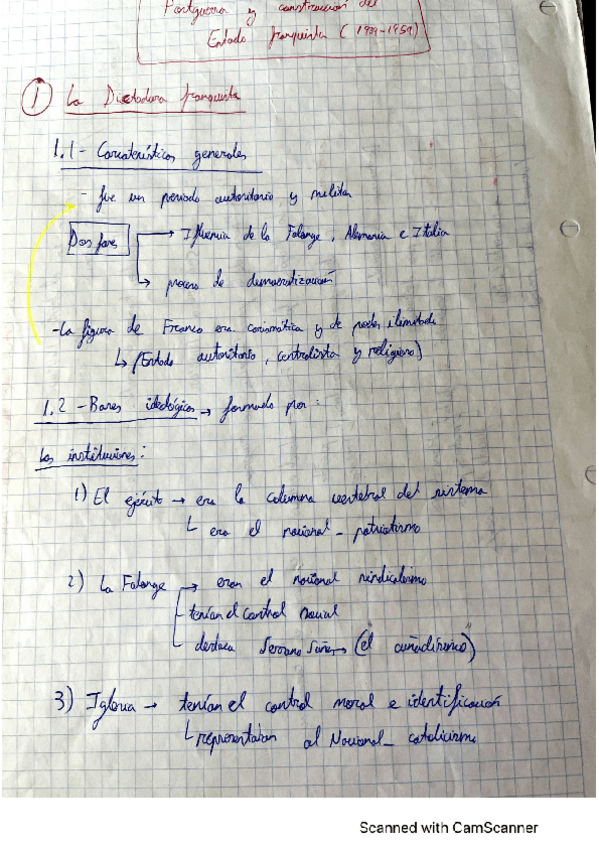 Postguerra y construcción del
Estado franquista (1939-1959)
① La Dictadura franquista
1.1 - Características generales
- fue un periodo autoritario y militar
Dos fases → Influencia de la Falange, Alemania e Italia
↳ proceso de democratización
- La figura de Franco era carismática y de poder ilimitado
↳ (Estado autoritario, centralista y religioso)
1.2 - Bases ideológicas → formado por:
Las instituciones:
1) El ejército → era la columna vertebral del sistema
↳ era el nacional - patriotismo
2) La Falange → eran el nacional sindicalismo
tenían el control social
destaca Serrano Suñer → (el "cuñadísimo")
3) Iglesia → tenían el control moral e identificación
↳ representaban al Nacional - catolicismo
Scanned with CamScanner